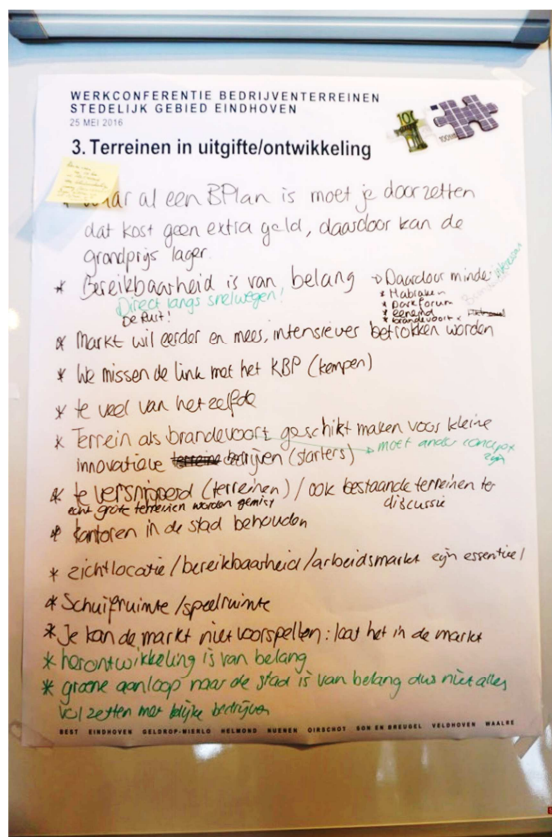 WERKCONFERENTIE BEDRIJVENTERREINEN
STEDELIJK GEBIED EINDHOVEN
25 MEI 2016
3. Terreinen in uitgifte/ontwikkeling
100
* waar al een BPlan is moet je doorzetten
dat kost geen extra geld, daardoor kan de
grondprijs lager.
* Bereikbaarheid is van belang → Daardoor minder
Direct langs snelwegen!
De Run!
* Habraken
* parkforum
* eenemd
* brandevoort
* Markt wil eerder en mees, intensiever betrokken worden
* We missen de link met het KBP (kempen)
* te veel van het zelfde
* Terrein als brandevoort geschikt maken voor kleine
innovatieve bedrijven (starters) → moet ander concept
zijn
* te versnipperd (terreinen) / ook bestaande terreinen ter
echt grote terreinen worden gemist discussie
* kantoren in de stad behouden
* zichtlocatie/bereikbaarheid/arbeidsmarkt zijn essentieel
* Schuifruimte/speelruimte
* Je kan de markt niet voorspellen: laat het in de markt
* herontwikkeling is van belang
* groene aanloop naar de stad is van belang dus niet alles
vol zetten met blije bedrijven
BEST EINDHOVEN GELDROP-MIERLO HELMOND NUENEN OIRSCHOT SON EN BREUGEL VELDHOVEN WAALRE